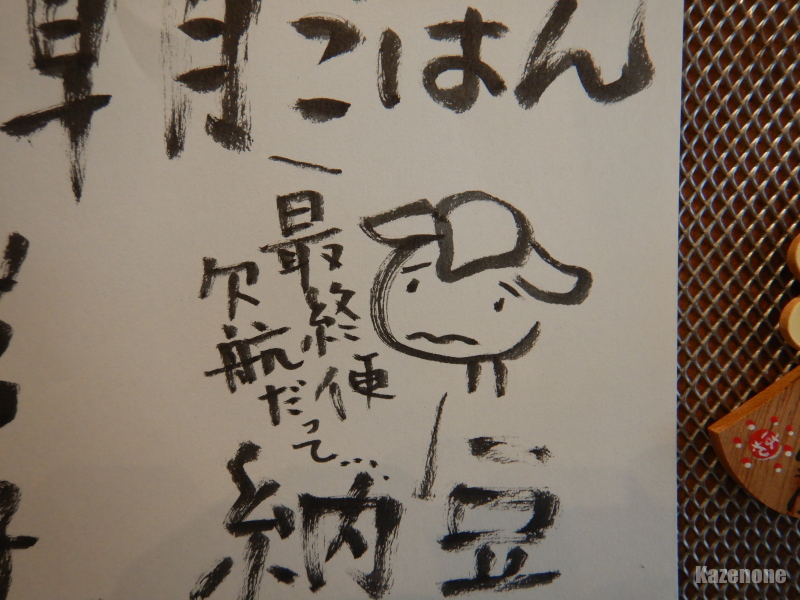 朝ごはん
最終便
欠航だって...
納豆
Kazenone